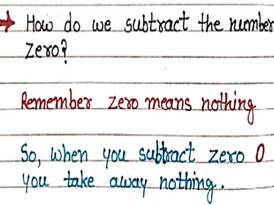 → How do we subtract the number
zero?
Remember zero means nothing
So, when you subtract zero 0
you take away nothing.